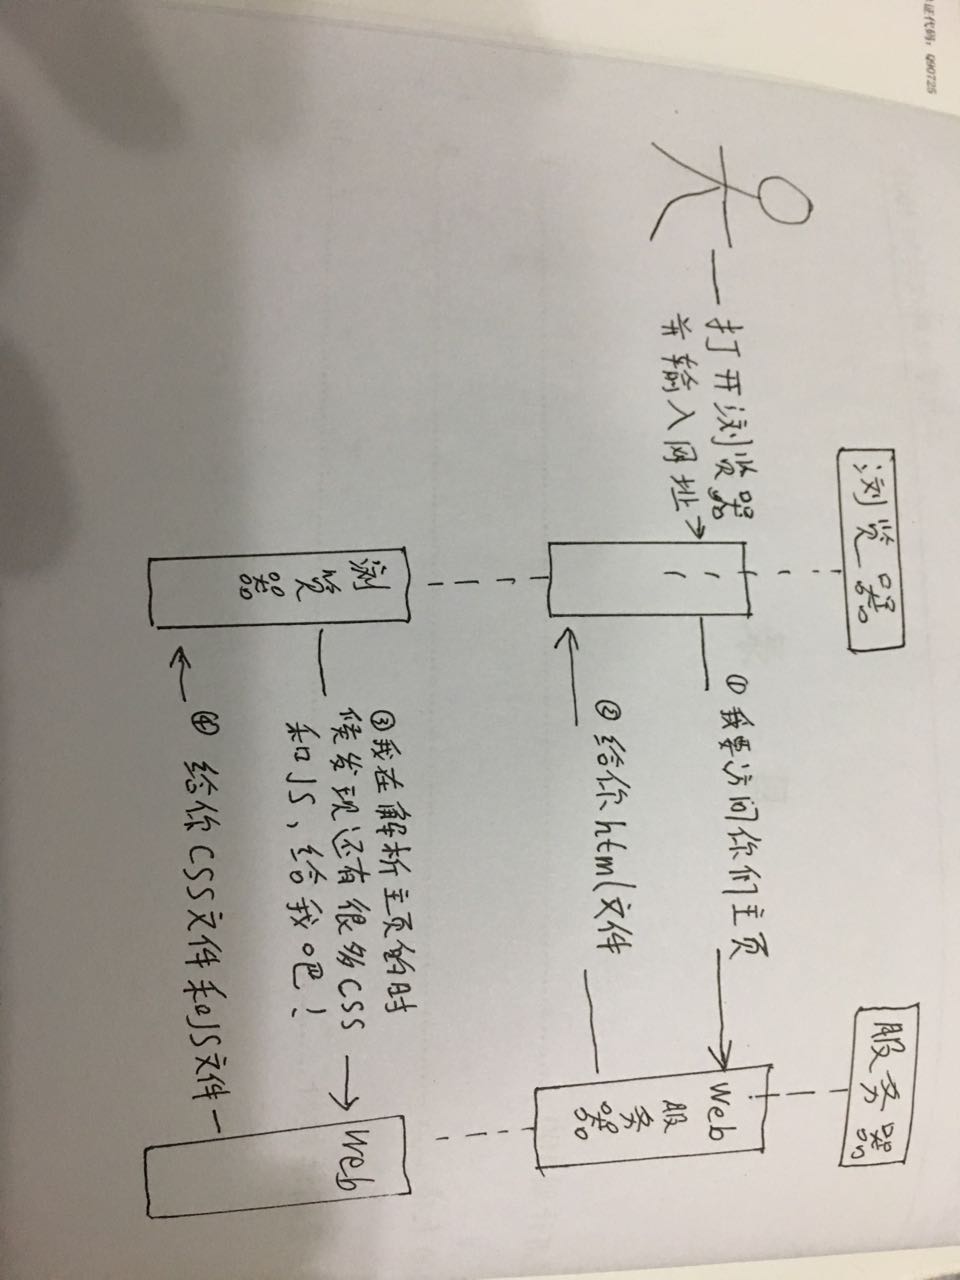 证代码：Q90725
浏览器
服务器
打开浏览器
并输入网址
①我要访问你们主页
Web
服
务
器
②给你html文件
浏
览
器
③我在解析主页的时
候发现还有很多CSS
和JS，给我吧！
Web
④ 给你CSS文件和JS文件